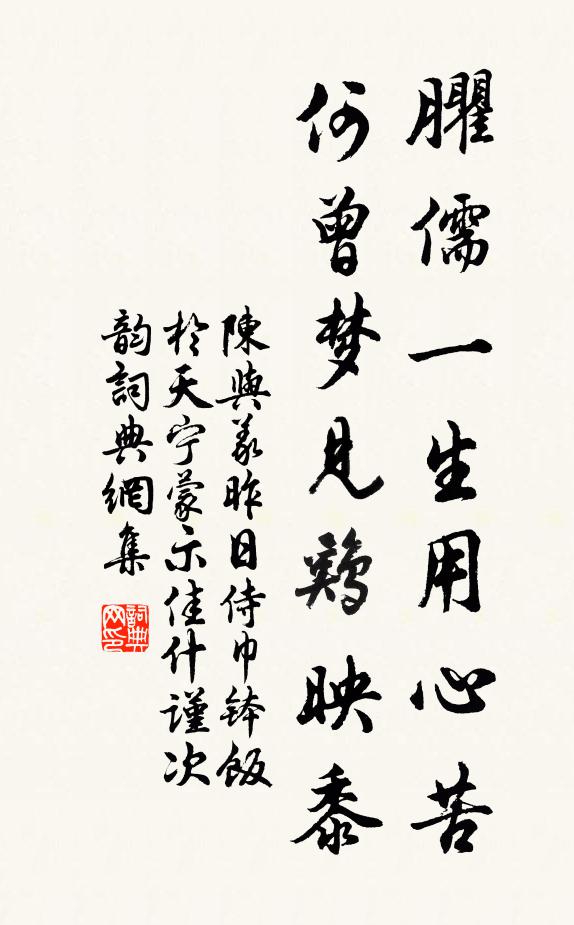 臞儒一生用心苦
何曾梦見鷄映黍
陳與義昨日侍巾鉢飯
於天宁蒙示佳什謹次
韵詞典網集
詞典网印